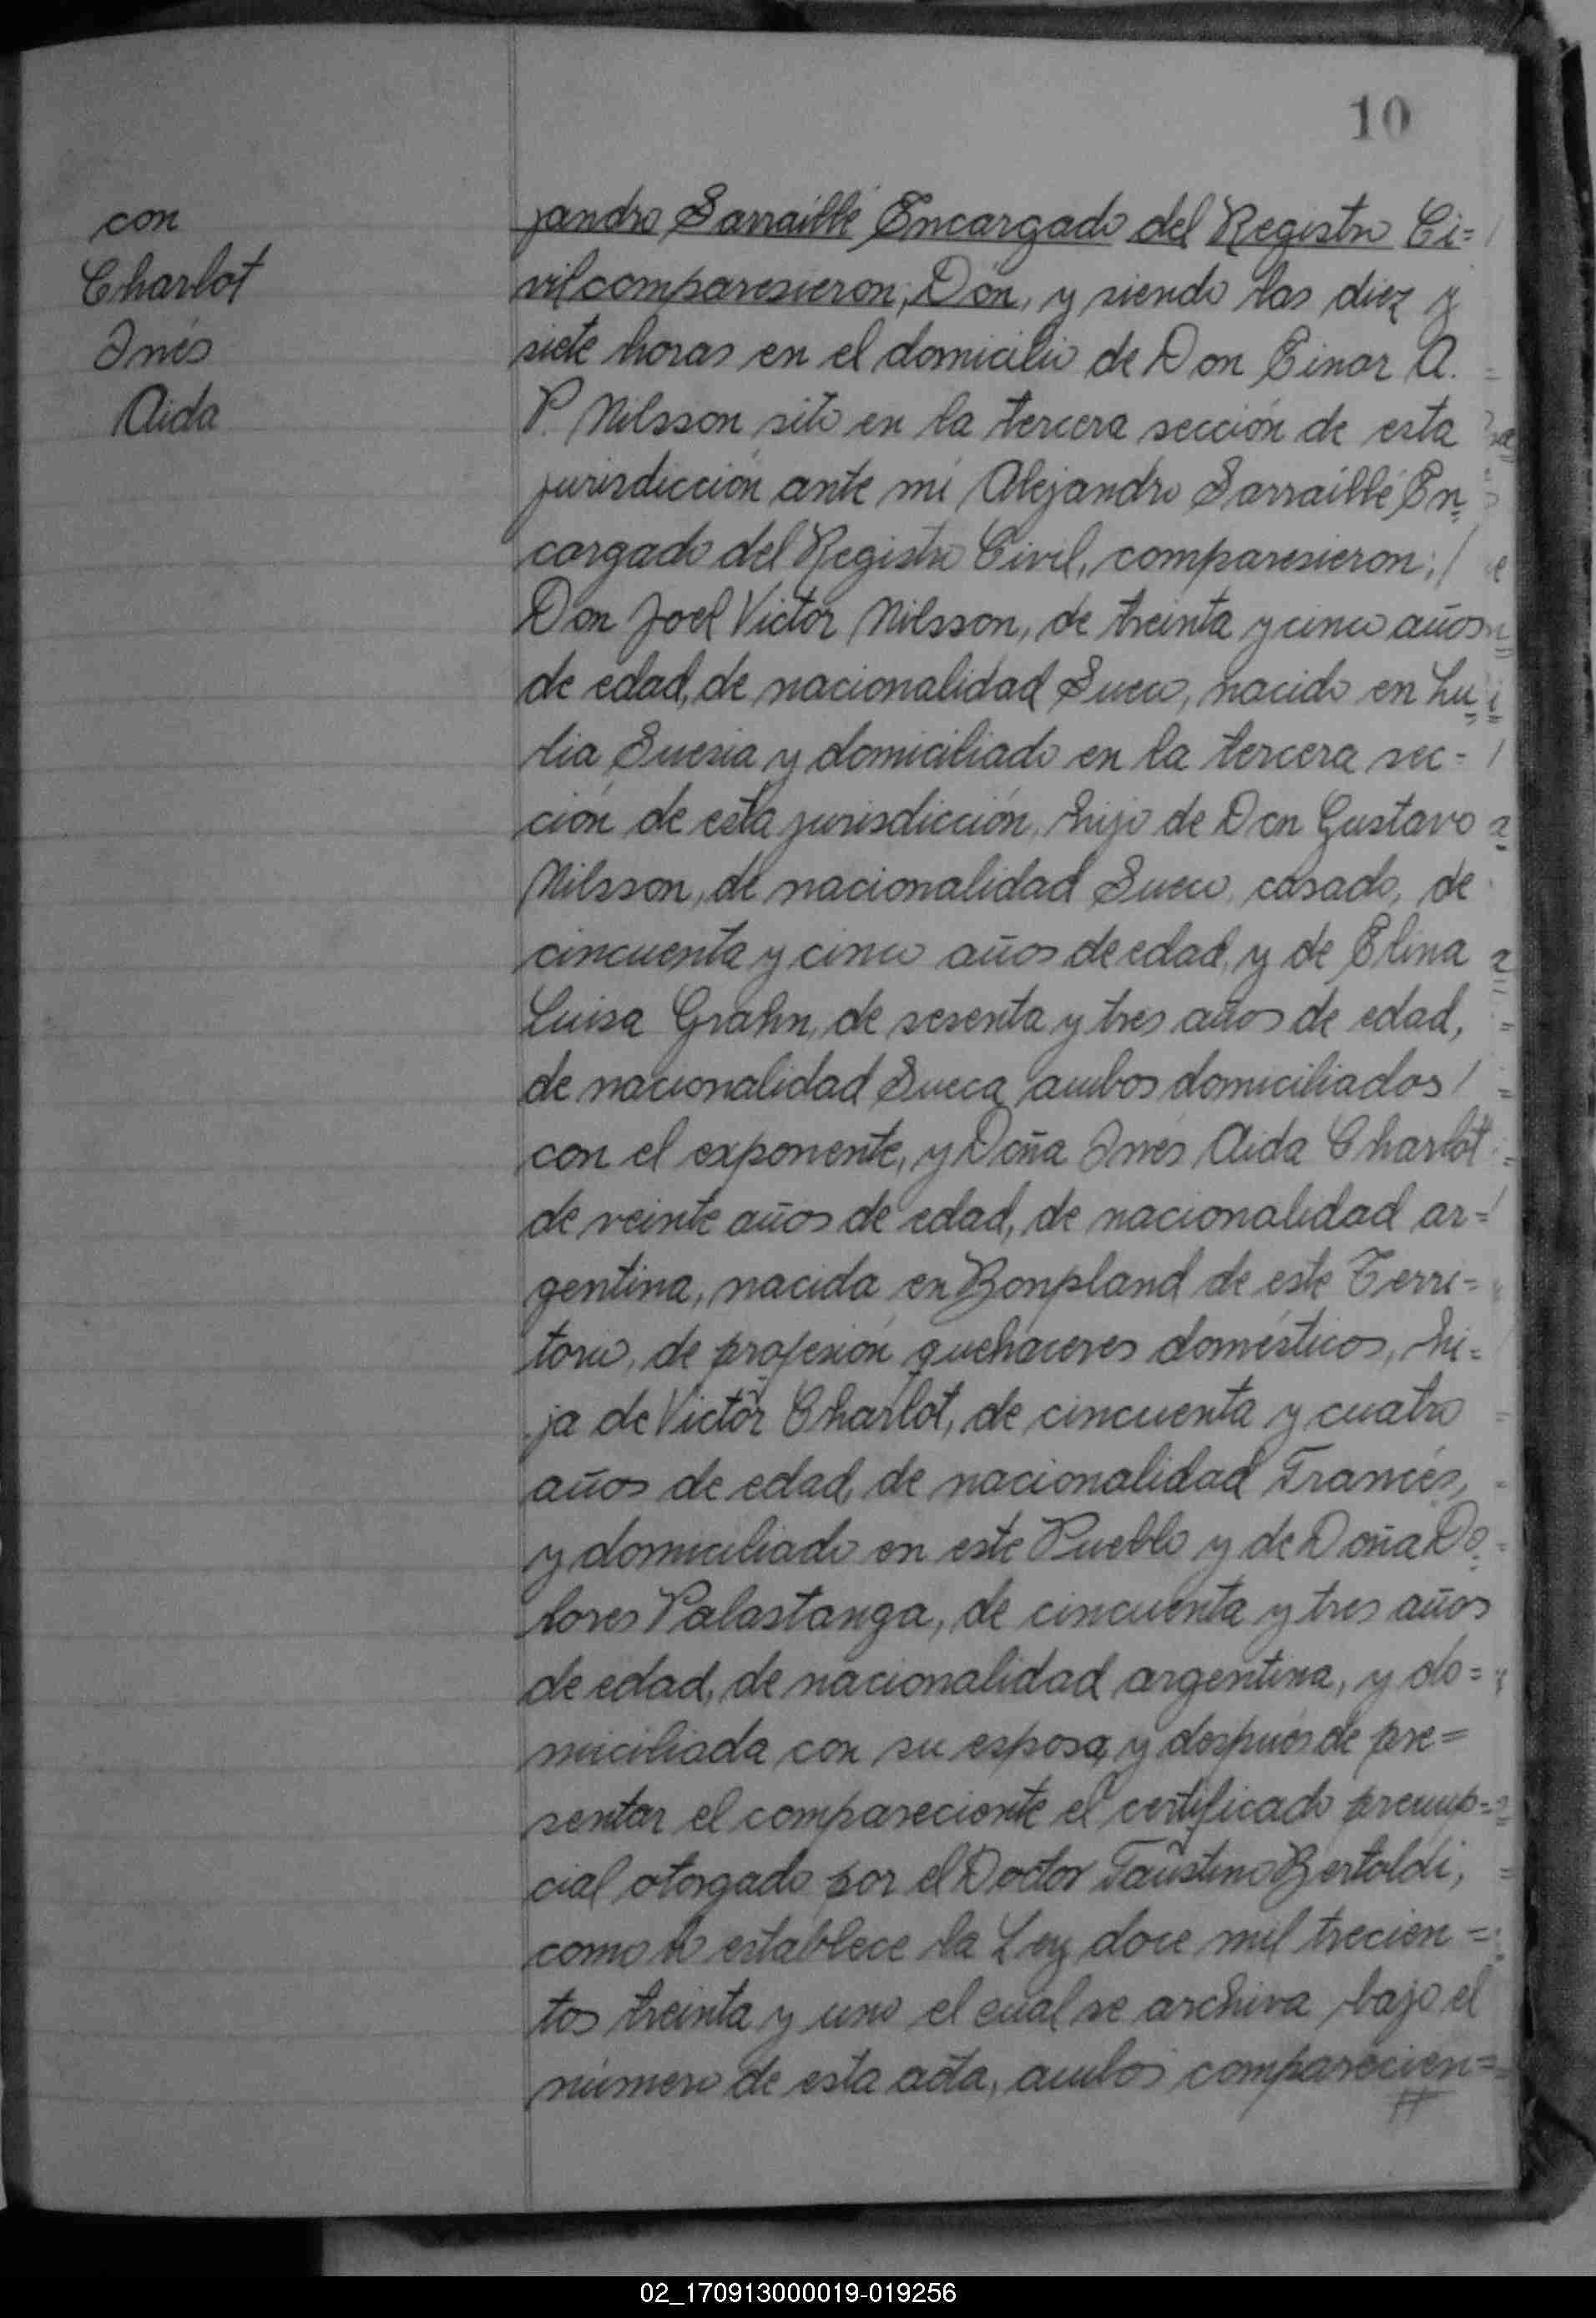 10
con
Charlot
Inés
Aida
jandro Sarraillé Encargado del Registro Ci=
vil comparesieron, Don, y siendo las diez y
siete horas en el domicilio de Don Einar A.
P. Nilsson sito en la tercera sección de esta
jurisdicción ante mi Alejandro Sarraillé En
cargado del Registro Civil, comparesieron;/
Don Joel Victor Nilsson, de treinta y cinco años
de edad, de nacionalidad Sueco, nacido en Lu
lia Suesia y domiciliado en la tercera sec=
ción de esta jurisdicción, hijo de Don Gustavo
Nilsson, de nacionalidad Sueco, casado, de
cincuenta y cinco años de edad, y de Elina
Luisa Grahn, de sesenta y tres años de edad,
de nacionalidad Sueca, ambos domiciliados/
con el exponente, y Doña Inés Aida Charlot
de veinte años de edad, de nacionalidad ar=
gentina, nacida en Bonpland de este Terri=
torio, de profesión quehaceres domésticos, hi=
ja de Victor Charlot, de cincuenta y cuatro
años de edad, de nacionalidad Francés,
y domiciliado en este Pueblo y de Doña Do
lores Palastanga, de cincuenta y tres años
de edad, de nacionalidad argentina, y do=
miciliada con su esposo, y después de pre=
sentar el compareciente el certificado prenup=
cial otorgado por el Doctor Faustino Bertoldi,
como lo establece la Ley doce mil trecien=
tos treinta y uno el cual se archiva bajo el
número de esta acta, ambos comparecien=
02_170913000019-019256